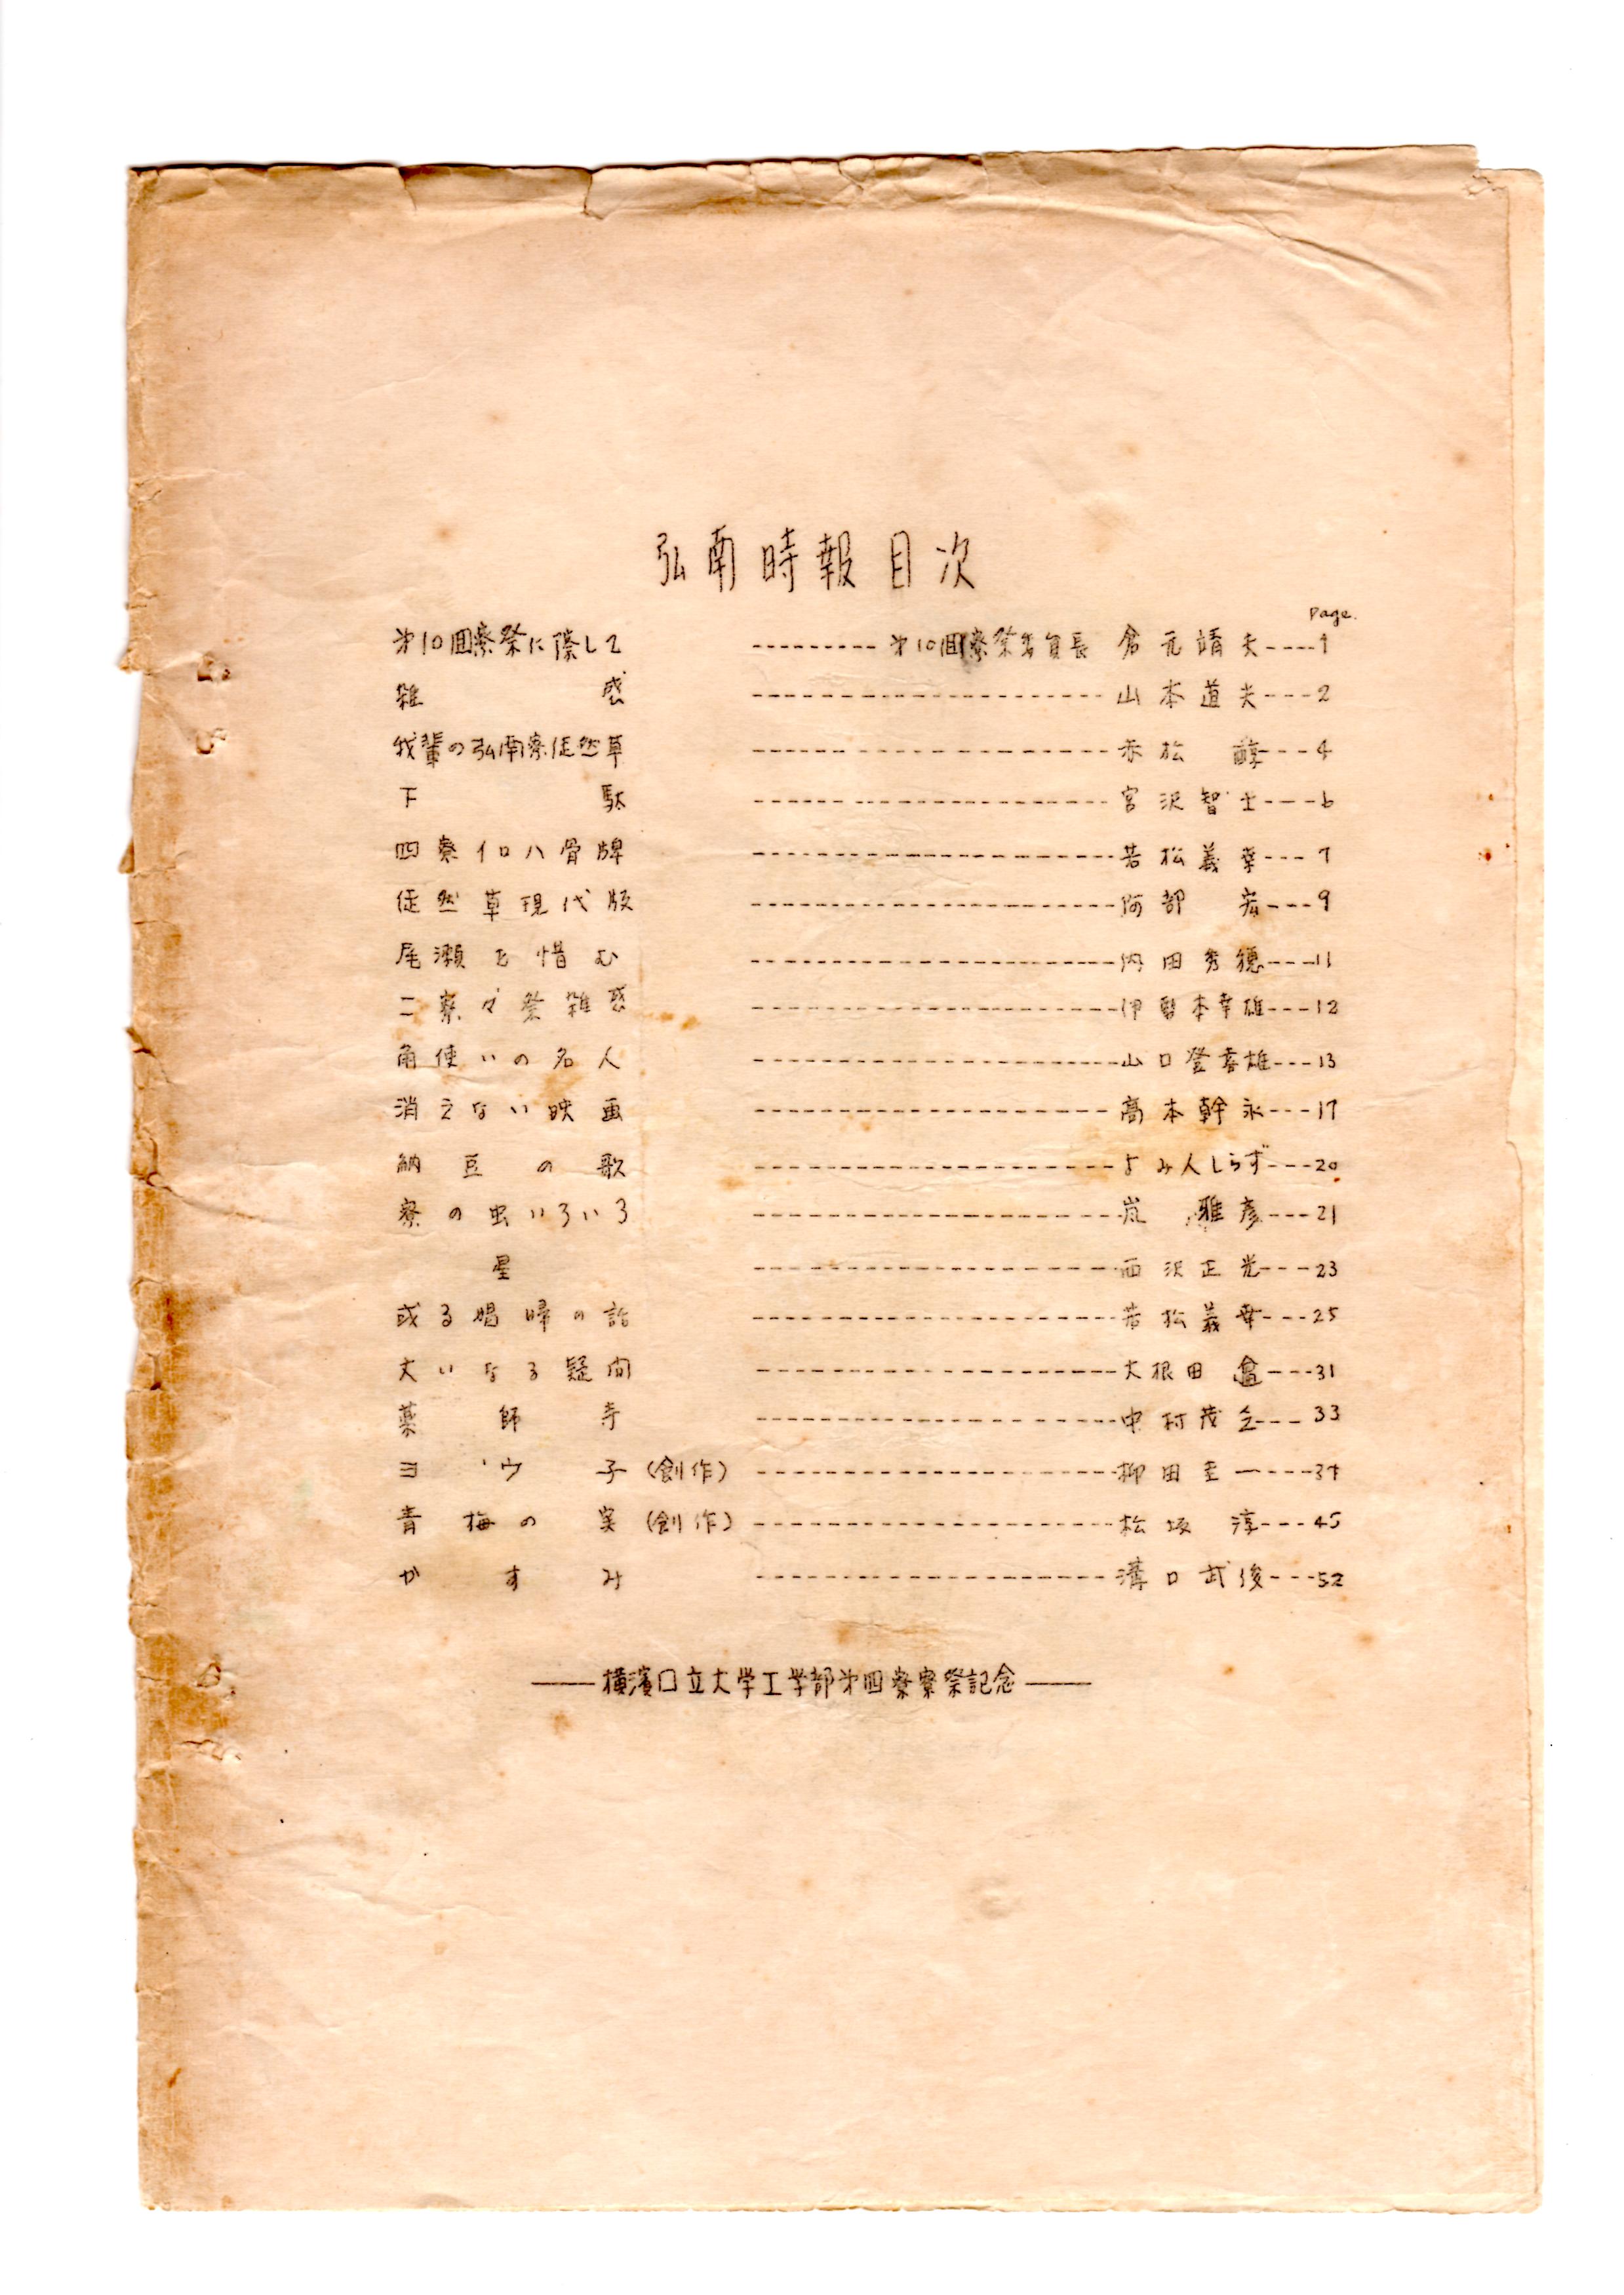 弘南時報目次
page.
第10回寮祭に際して --------- 第10回寮祭委員長 倉元靖夫----1
雑感 ---------------------- 山本道夫---2
我輩の弘南寮徒然草 ---------------------- 赤松 醇---4
下駄 ---------------------- 宮沢智士---6
四寮イロハ骨牌 ---------------------- 若松義幸---7
徒然草現代版 ---------------------- 阿部 宏---9
尾瀬を惜む ---------------------- 内田秀穂---11
二寮々祭雑感 ---------------------- 伊智本幸雄---12
角使いの名人 ---------------------- 山口登喜雄---13
消えない映画 ---------------------- 高本幹永---17
納豆の歌 ---------------------- よみ人しらず---20
寮の虫いろいろ ---------------------- 嵐 雅彦---21
星 ---------------------- 西沢正光---23
或る娼婦の話 ---------------------- 若松義幸---25
大いなる疑問 ---------------------- 大根田 ---31
薬師寺 ---------------------- 中村茂 ---33
ヨウ子(創作) ---------------------- 柳田圭一----34
青梅の実(創作) ---------------------- 松坂 淳---45
かすみ ---------------------- 溝口武俊---52
——横濱囗立大学工学部第四寮寮祭記念——